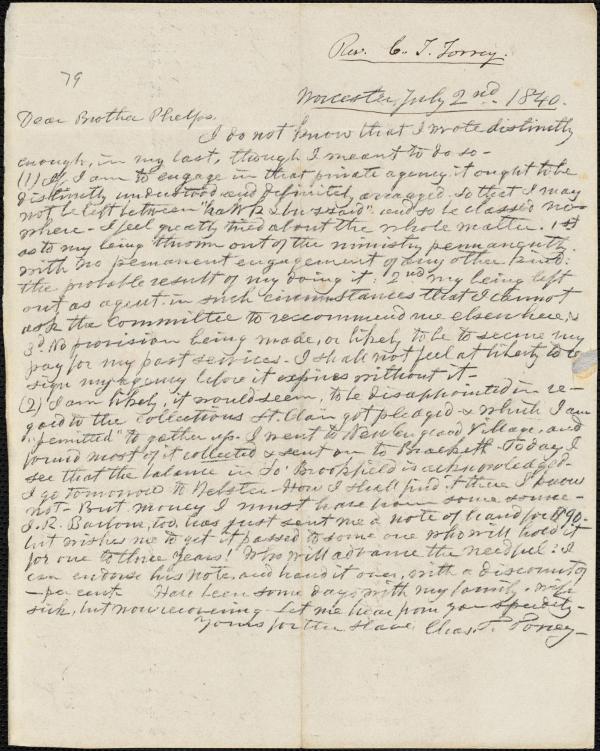 Rev. C. T. Torrey.
79
Worcester, July 2nd. 1840.
Dear Brother Phelps,
I do not know that I wrote distinctly
enough, in my last, though I meant to do so -
(1) If I am to engage in that private agency, it ought to be
distinctly understood and definitely arranged. So that I may
not be left between "hawk & buzzard" and so be classed no-
where - I feel greatly tried about the whole matter. 1st
as to my being thrown out of the ministry permanently
with no permanent engagement of any other kind:
the probable result of my doing it: 2nd my being left
out as agent in such circumstances that I cannot
ask the Committee to reccommend me elsewhere; &
3d. No provision being made, or likely to be to secure my
pay for my past services - I shall not feel at liberty to re
sign my agency before it expires without it -
(2) I am likely, it would seem, to be disappointed in re-
gard to the collections St. Clair got pledged & which I am
"permitted" to gather up. I went to New England Village, and
found most of it collected & sent on to Brackett - Today I
see that the balance in So' Brookfield is acknowledged -
I go tomorrow to Webster - How I shall find it there I know
not - But money I must have from some source -
J. R. Barbour, too, has just sent me a note of hand for $90 -
but wishes me to get it passed to some one who will hold it
for one to three years! Who will advance the needful? I
can endorse his note, and hand it over, with a discount of
- per cent Have been some days with my family - wife
sick, but now recovering - Let me hear from you speedily -
Yours for the slave Chas. T. Torrey -